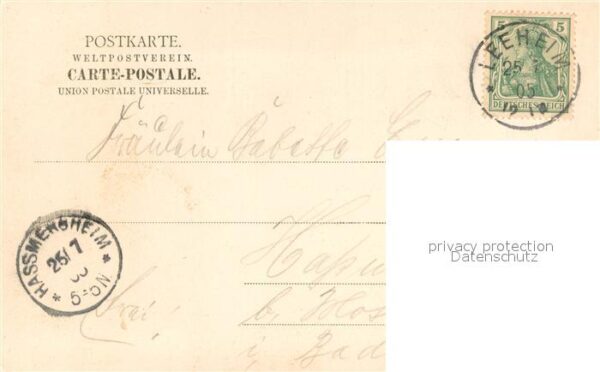 POSTKARTE.
WELTPOSTVEREIN.
CARTE-POSTALE.
UNION POSTALE UNIVERSELLE.
5 5
DEUTSCHES REICH
LEEHEIM
25 7
05
* 12-1N
Fräulein Babette
privacy protection
Datenschutz
HASSMERSHEIM
25/7
05
* 5-6N *
Frei!
b. Mos
i. Bad